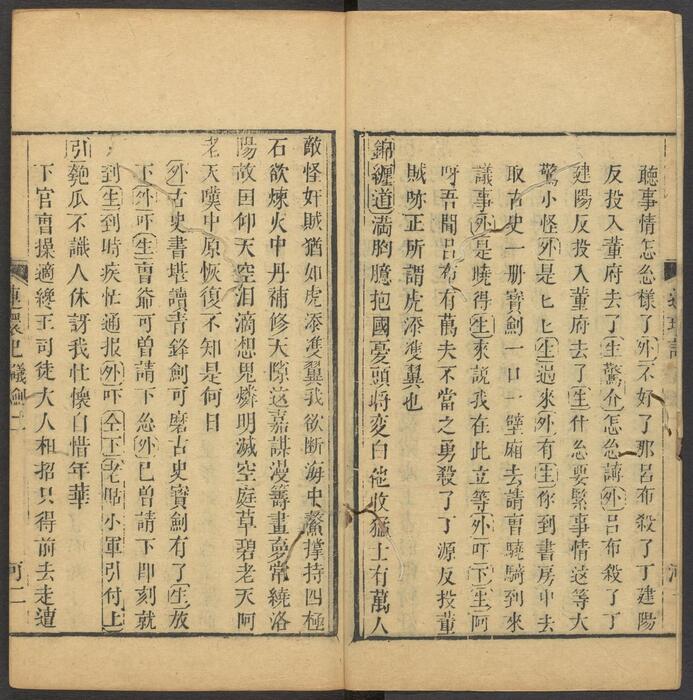 聽事情怎麽樣了外不好了那呂布殺了丁建陽
反投入董府去了生驚介怎麽講外呂布殺了丁
建陽反投入董府去了生什麽要緊事情这等大
驚小怪外是匕匕生過來外有生你到書房中去
取古史一册寳劍一口一壁廂去請曹驍騎到來
議事外是曉得生來說我在此立等外吓下生阿
呀吾聞呂布有萬夫不當之勇殺了丁源反投董
賊跡正所謂虎添雙翼也
錦纏道满胸臆抱國憂頭將变白他收猛士有萬人
敵怪奸賊猶如虎添雙翼我欲断海中鰲撑持四極
石欲煉火中丹補修天隙这嘉謀漫籌畫夣常繞洛
陽故囯仰天空泪滴想鬼燐明滅空庭草碧老天阿
老天嘆中原恢復不知是何日
外古史書堪讀青鋒劍可磨古史寳劍有了生放
下外吓生曹爺可曾請下麽外已曾請下即刻就
到生到時疾忙通报外吓仝下老旦小軍引付上
引匏瓜不識人休訝我壮懷自惜年華
下官曹操適纔王司徒大人相招只得前去走遭
連環記
議劍
二
河二